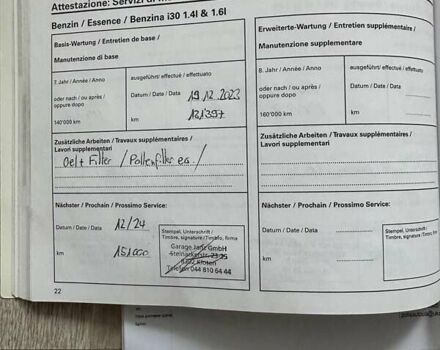 Attestazione: Servizi di
Benzin / Essence / Benzina i30 1.4l & 1.6l
Basis-Wartung / Entretien de base /
Manutenzione di base
7. Jahr / Année / Anno
ausgeführt/ effectué / effettuato
oder nach / ou après /
oppure dopo
Datum / Date / Data
19.12.2023
160'000 km
km
131397
Zusätzliche Arbeiten / Travaux supplémentaires /
Lavori supplementari
Oel + Filter / Pollenfilter
Nächster / Prochain / Prossimo Service:
Datum / Date / Data
12/24
km
151000
Stempel, Unterschrift /
Timbre, signature / Timbro, firma
Garage Janz GmbH
Steinackerstr.
8302 Kloten
Telefon 044 810 64 44
22
Erweiterte-Wartung / Entretien supplémentaire /
Manutenzione supplementare
8. Jahr / Année / Anno
ausgeführt/ effectué / effettuato
oder nach / ou après /
oppure dopo
Datum / Date / Data
160'000 km
km
Zusätzliche Arbeiten / Travaux supplémentaires /
Lavori supplementari
Nächster / Prochain / Prossimo Service:
Datum / Date / Data
km
Stempel, Unterschrift /
Timbre, signature / Timb